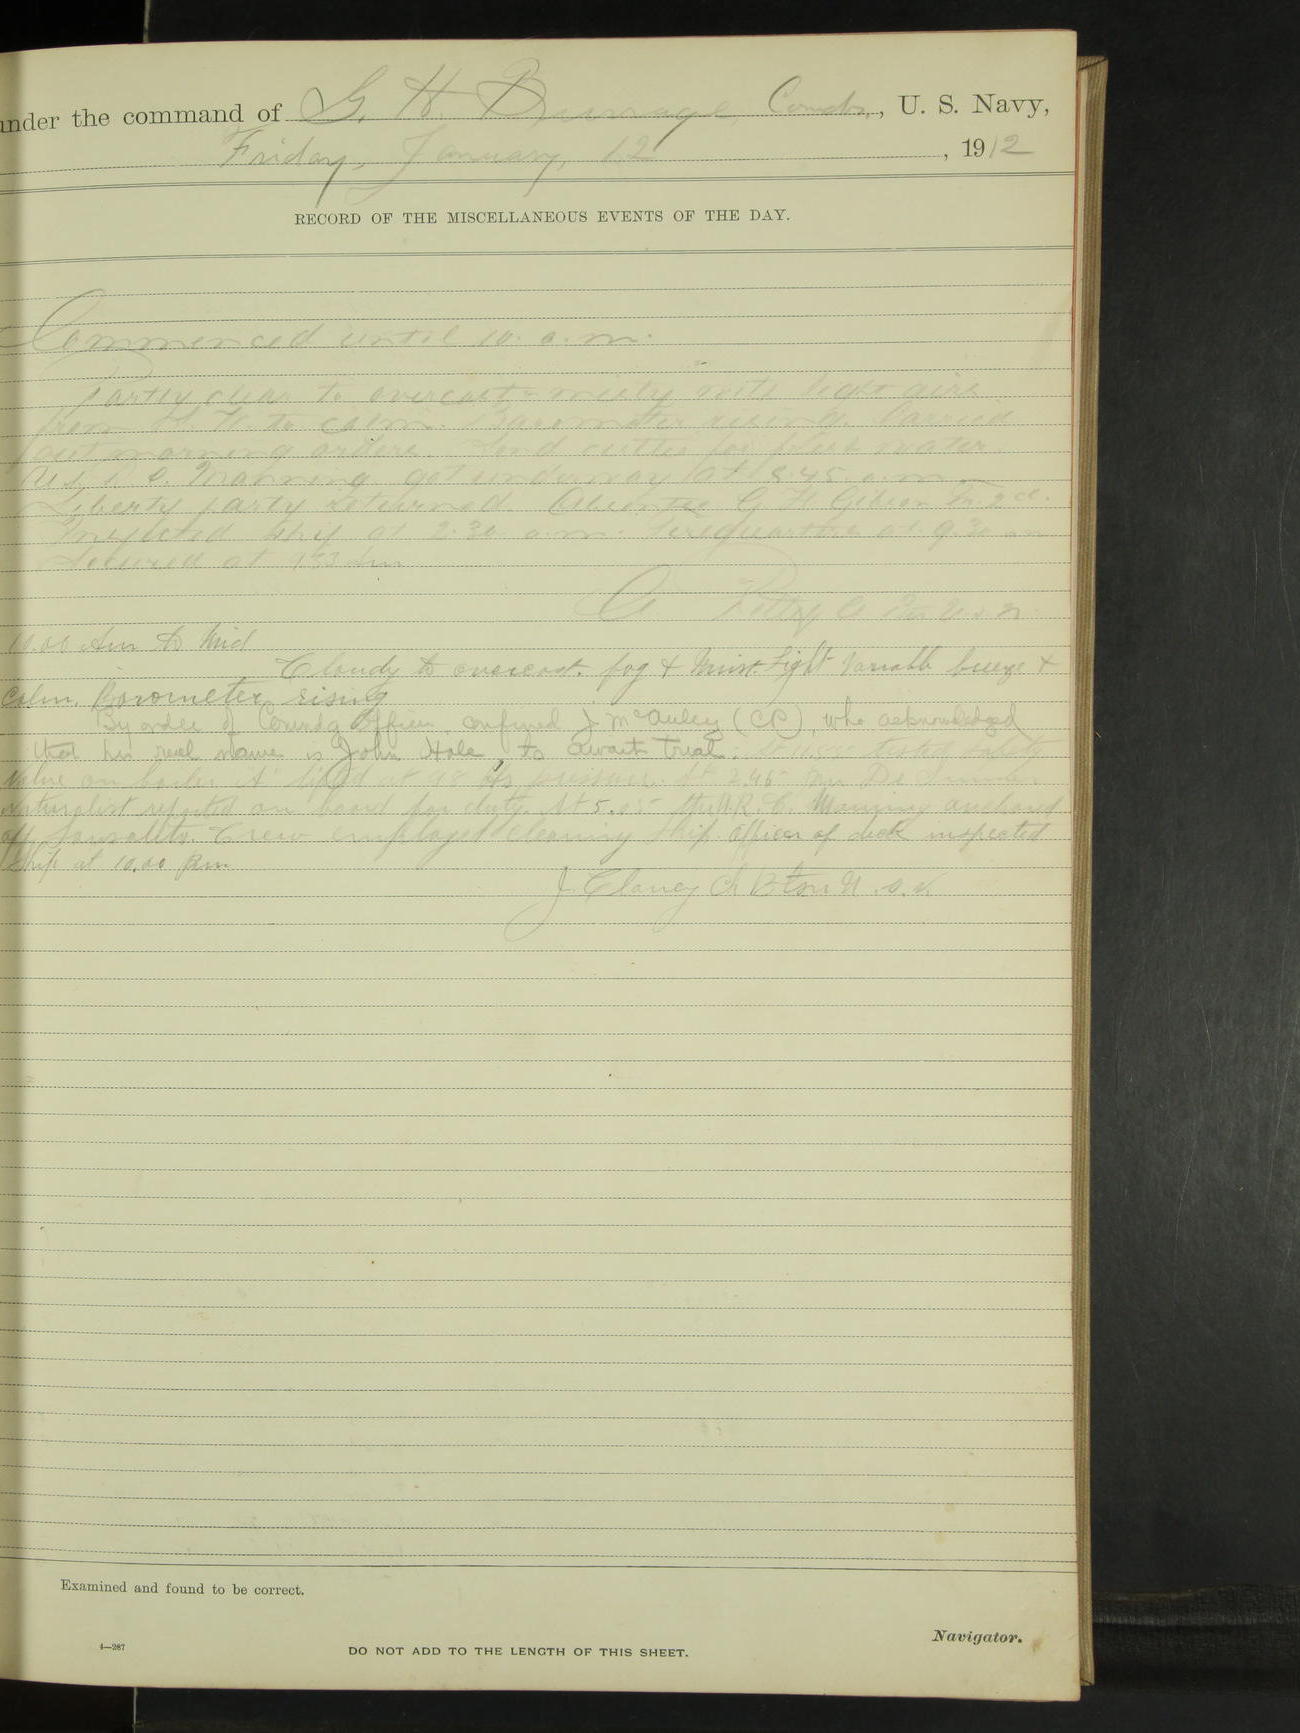 under the command of G. H. Burrage, Comdr., U. S. Navy,
Friday, January, 12, 1912
RECORD OF THE MISCELLANEOUS EVENTS OF THE DAY.
Commenced until 10. a.m.
Partly clear to overcast- misty with light airs
from to calm. Barometer rising. Carried
out morning orders. Send cutter for fresh water.
Manning got underway at 8.45 a.m.
Liberty party returned. Absentee G. H. Gibson 2cl.
Inspected ship at 2.30 a.m. at 9.30 am
Secured at
U S N
10.00 Am to Mid
Cloudy to overcast. fog & mist. Light variable breeze &
Calm. Barometer rising
By order of Comdg Officer confined J. McAuley (CP), who acknowledged
that his real name is John Hole, to await trial. tested safety
Valve on boiler "A" lifted at 98 lbs pressure. At 2.45
naturalist reported on board for duty. At 5.05 R. C. Manning anchored
off Sausalito. Crew employed cleaning ship. Officer of deck inspected
Ship at 10.00 pm
J. Clancy Ch Btsn U. S. N.
Examined and found to be correct.
Navigator.
4—287
DO NOT ADD TO THE LENGTH OF THIS SHEET.